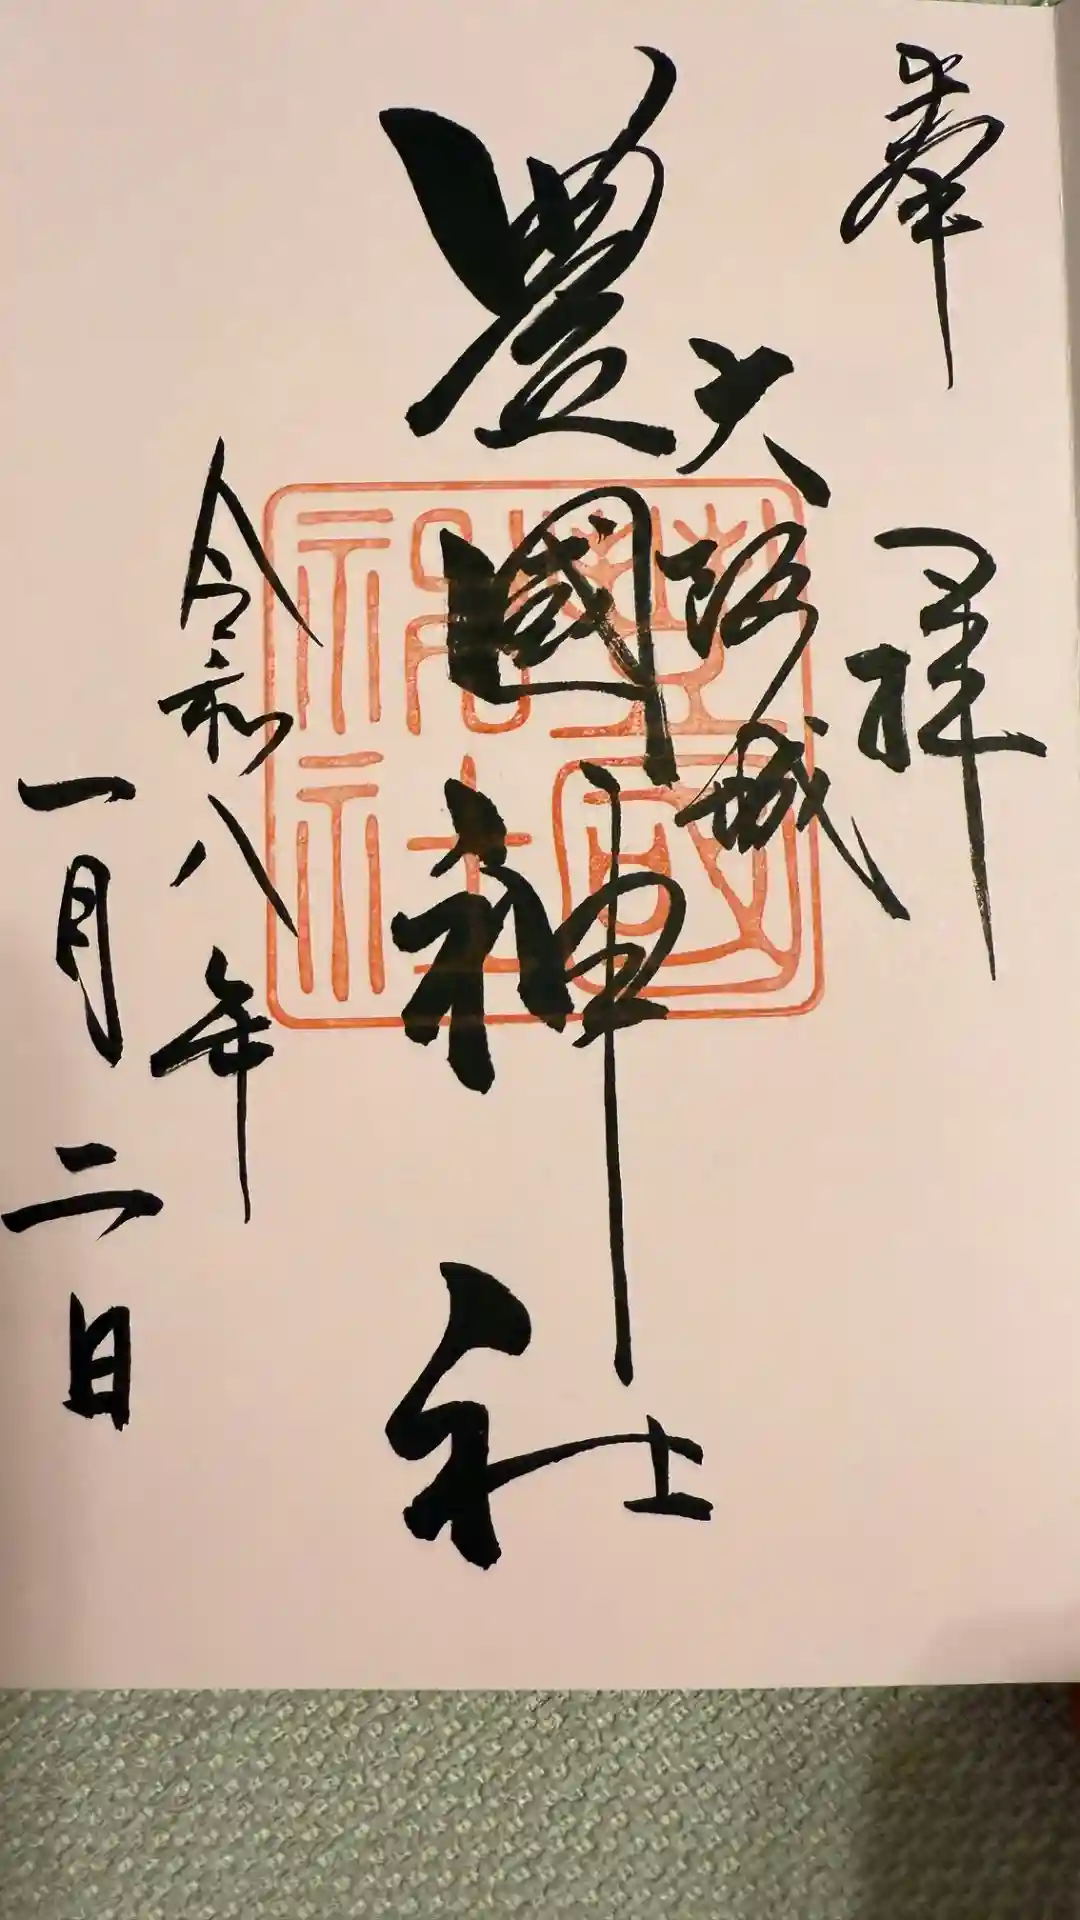 奉拝
大阪城
豊國神社
豊國神社
令和八年
一月二日